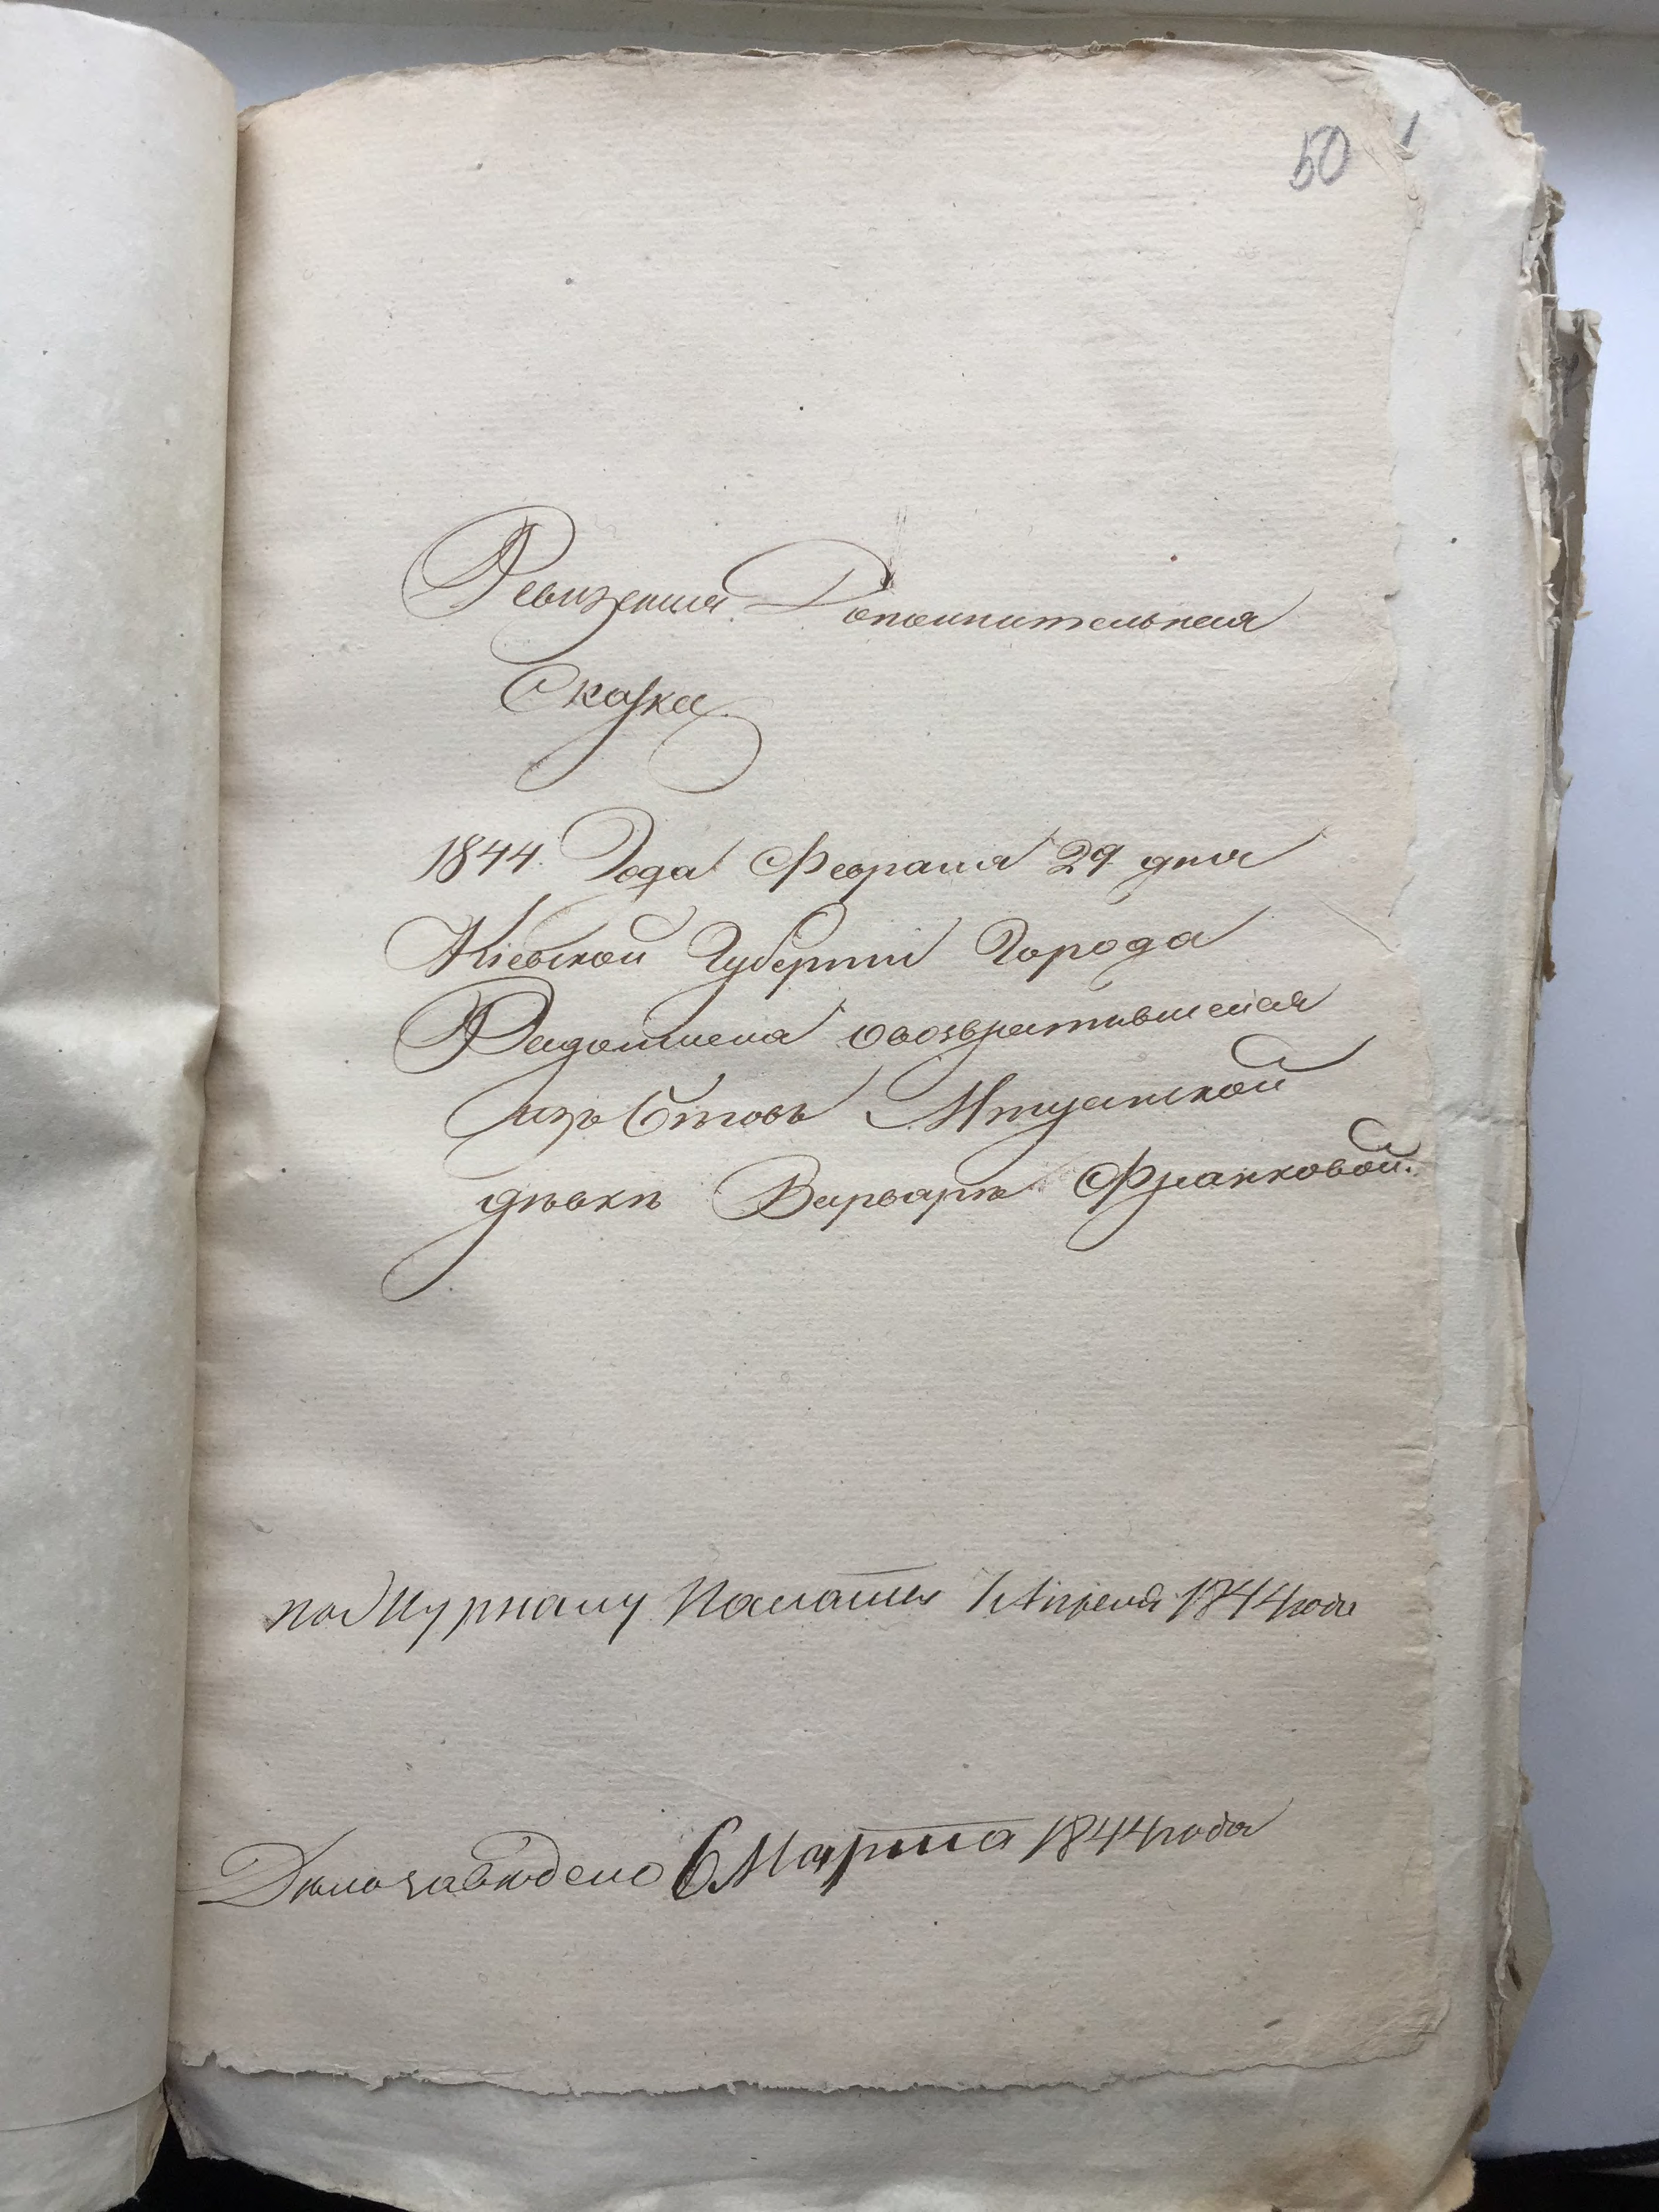 50 1
Ревизская Дополнительная
Сказка
1844 Года Февраля 29 дня
Кіевской Губерніи Города
Радомысла о возвратившейся
изъ бѣговъ
дѣвки Варвары Франковой.
по Журналу Палаты Апреля 1844 года
Дело заведено 6 Марта 1844 года